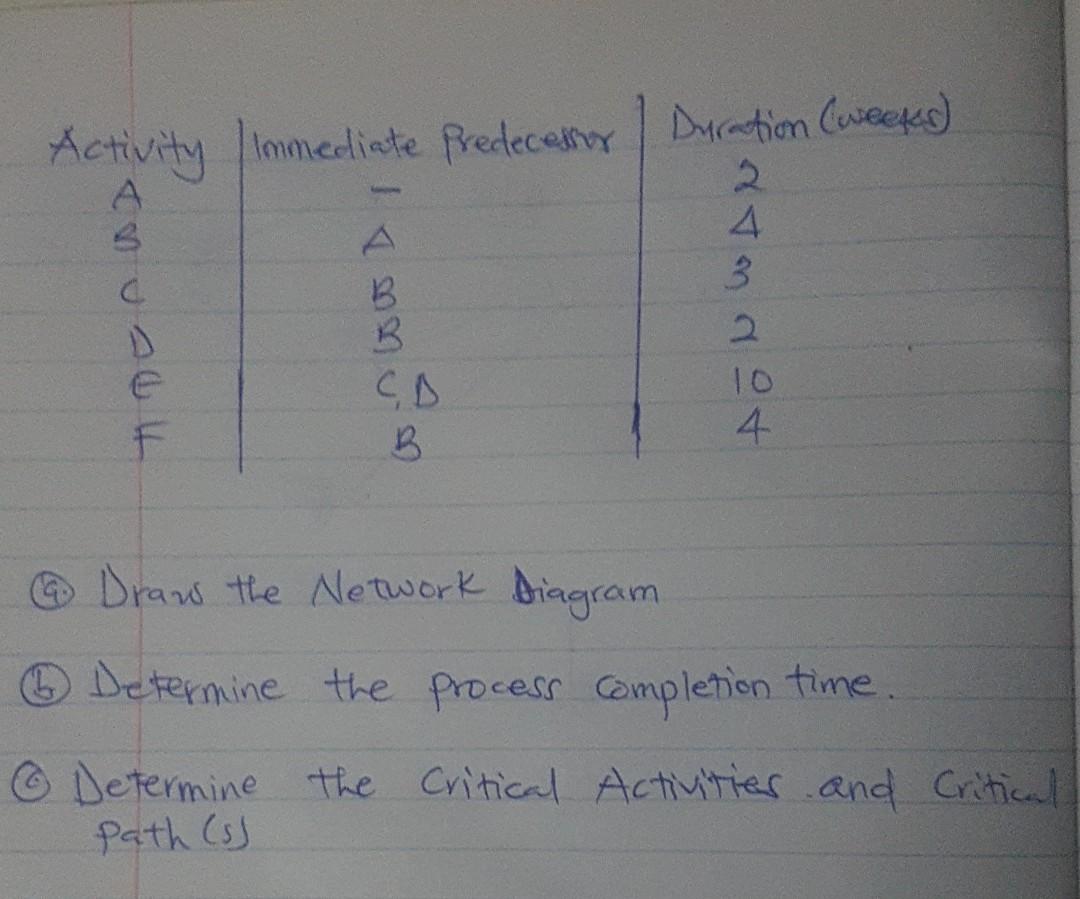 Activity | Immediate Predecessor | Duration (weeks)
A | – | 2
B | A | 4
C | B | 3
D | B | 2
E | C, D | 10
F | B | 4
ⓐ Draw the Network Diagram
ⓑ Determine the process completion time.
ⓒ Determine the Critical Activities and Critical
path(s)